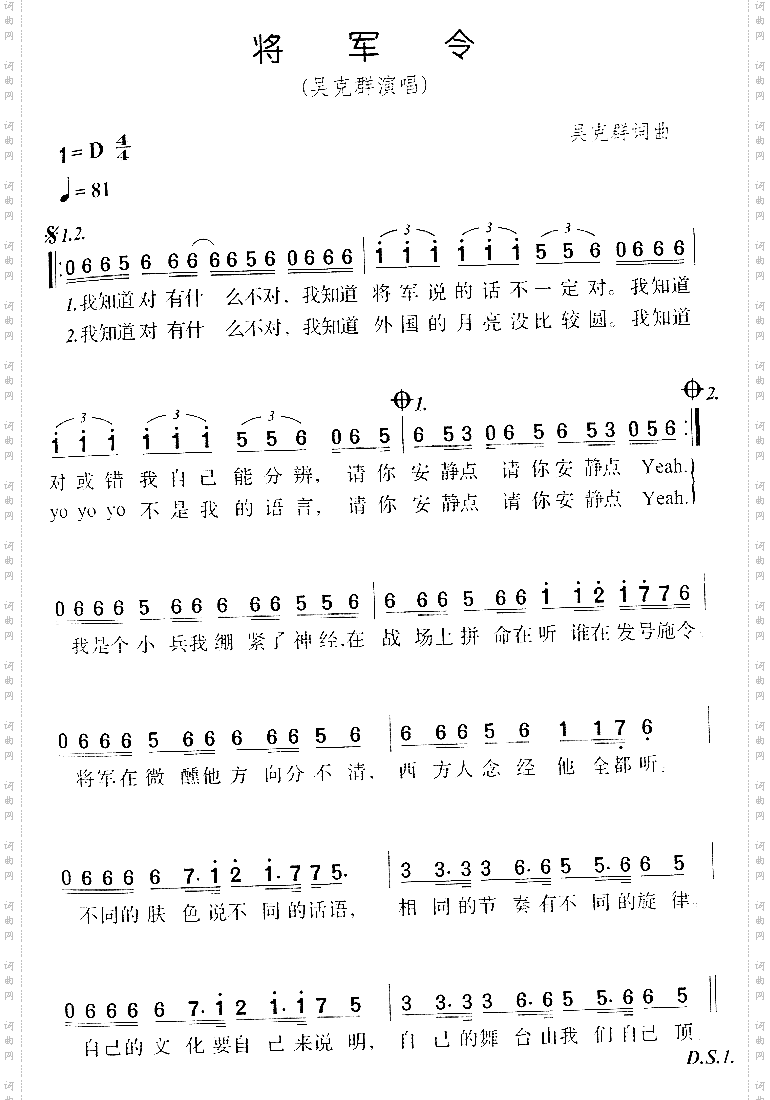 将 军 令
(吴克群演唱)
吴克群词曲
1=D 4/4
♩=81
𝄋1.2.
3 3 3
‖:0 6 6 5 6 6 6 6 6 5 6 0 6 6 6 | i i i i i i 5 5 6 0 6 6 6
1.我知道对 有什 么不对、我知道 将军说的话不一定对。我知道
2.我知道对 有什 么不对、我知道 外国的月亮没比较圆。我知道
3 3 3 1. 2.
i i i i i i 5 5 6 0 6 5 | 6 5 3 0 6 5 6 5 3 0 5 6 :‖
对或错我自己能分辨, 请你 安静点 请你安静点 Yeah.
yo yo yo 不是我的语言, 请你 安静点 请你安静点 Yeah.
0 6 6 6 5 6 6 6 6 6 6 5 5 6 | 6 6 6 5 6 6 i i 2 i 7 7 6
我是个小兵我绷紧了神经.在 战场上拼命在听 谁在发号施令
0 6 6 6 5 6 6 6 6 6 6 5 6 | 6 6 6 5 6 1 1 7 6
将军在微醺他方向分不清, 西方人念经他全都听.
0 6 6 6 6 7. i 2 i. 7 7 5. | 3 3. 3 3 6. 6 5 5. 6 6 5
不同的肤色说不同的话语, 相同的节奏有不同的旋律.
0 6 6 6 6 7. i 2 i. i 7 5 | 3 3. 3 3 6. 6 5 5. 6 6 5 ‖
自己的文化要自己来说明, 自己的舞台由我们自己顶
D.S.1.
词曲网